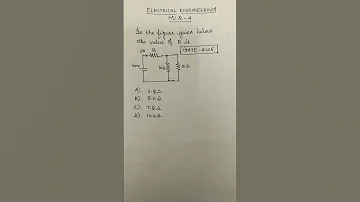 ELECTRICAL ENGINEERING
MCQ-4
In the figure given below
the value of R is
GATE-2005
R
100V
10Ω
10Ω
A). 2.5Ω
B). 5.0Ω
C). 7.5Ω
D). 10.0Ω